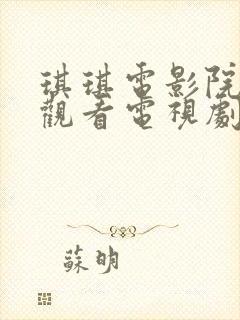 琪琪電影院
觀看電視劇
蘇明